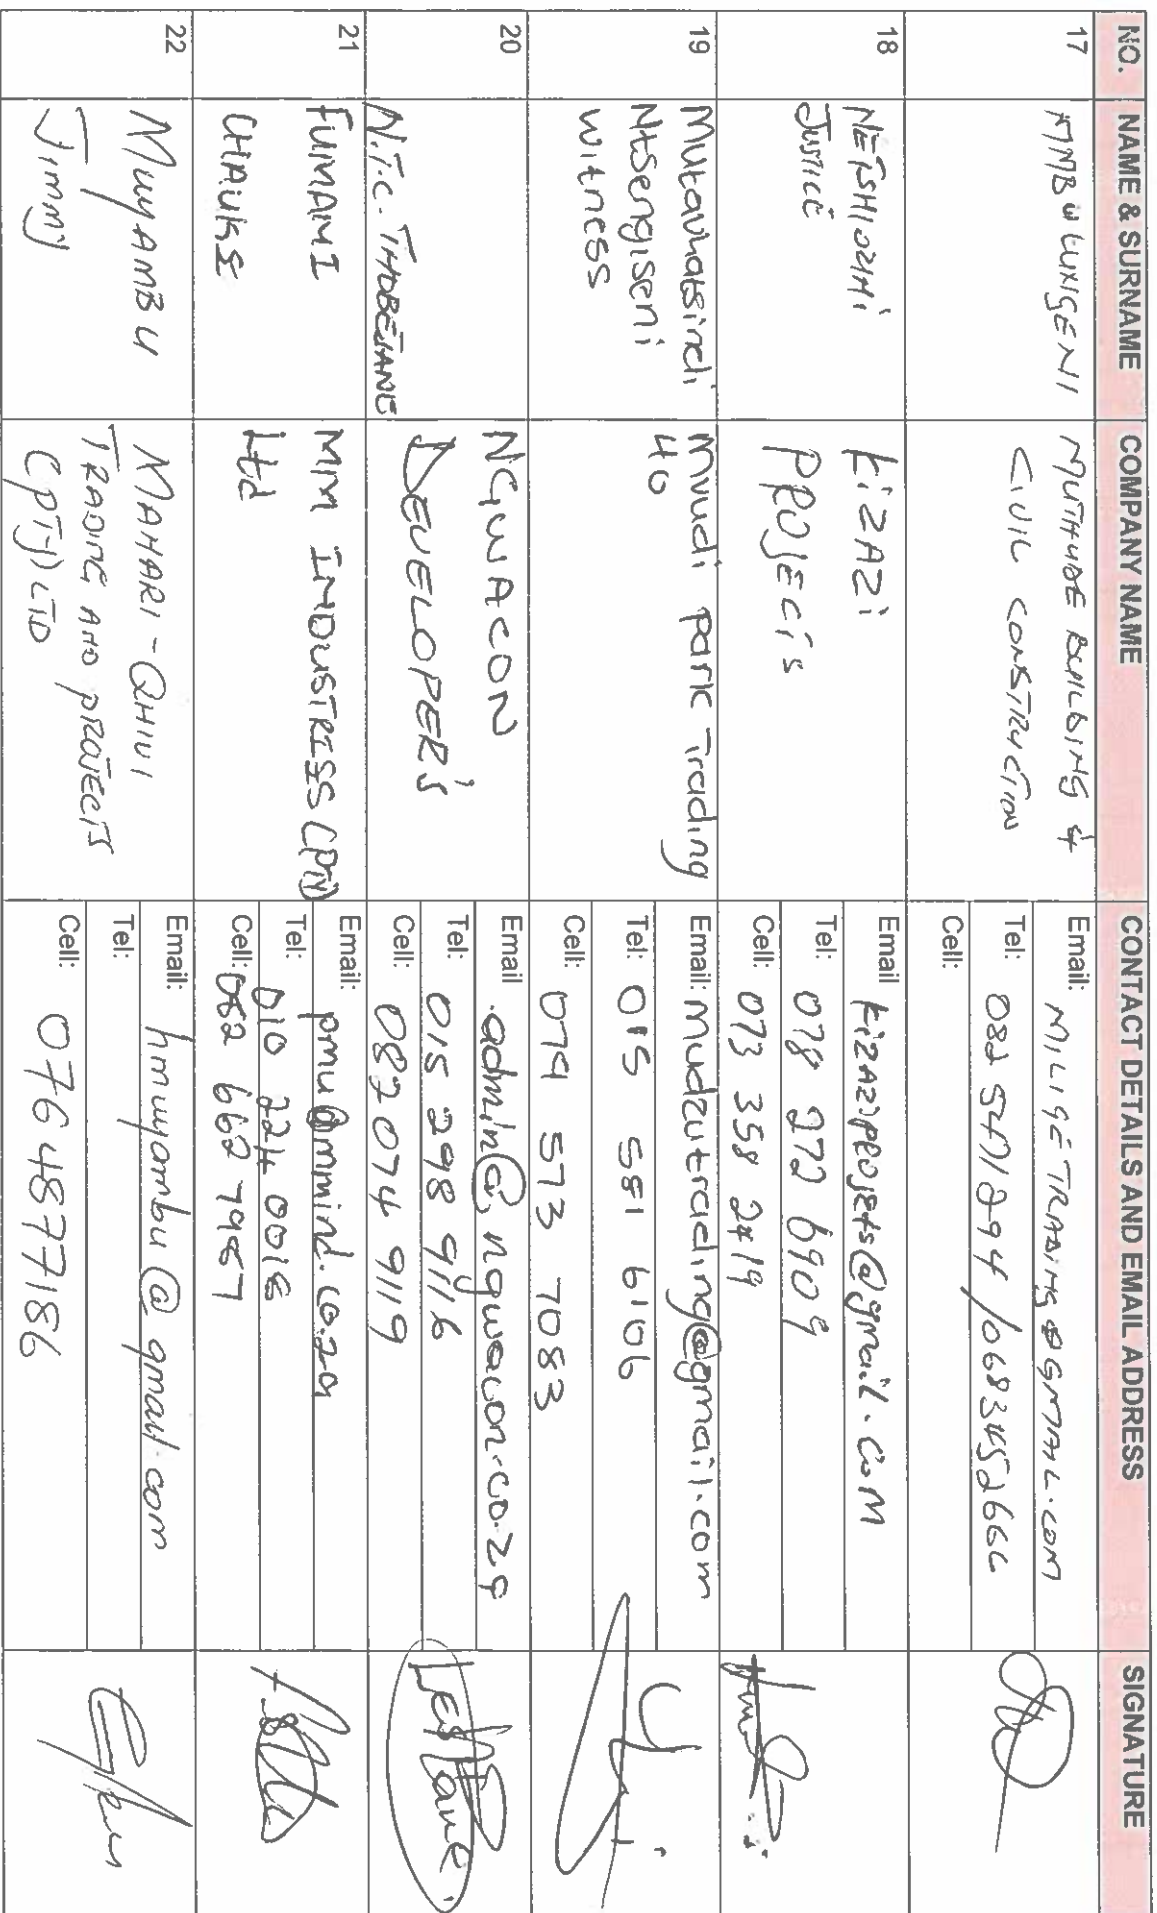 NO. NAME & SURNAME COMPANY NAME CONTACT DETAILS AND EMAIL ADDRESS SIGNATURE
17
MUTHUDE BUILDING &
CIVIL CONSTRUCTION
Email: MILIGETRADING@GMAIL.COM
Tel: 082 5471294 /
18
NETSHIOZHI
JUSTICE
EiZAZi
PROJECTS
Email
Tel: 078 272 6909
Cell: 073 358
19
Mutavhatsindi
Ntsengiseni
witness
Mvudi park Trading
40
Email: Mudzutrading@gmail.com
Tel: 015 581 6106
Cell: 079 573 7083
20
N.T.C. THOBEJANE
NGWACON
DEVELOPER'S
Email admin@ngwacon.co.za
Tel: 015 298 9116
Cell: 082 074 9119
21
FUMANI
CHAUKE
MM INDUSTRIES (PTY)
Ltd
Email: pmu@mmind.co.za
Tel: 010 224 0018
Cell: 082 662 7987
22
MUYAMBU
JIMMY
MAHARI-QHIVI
TRADING AND PROJECTS
(PTY) LTD
Email: hmuyambu@gmail.com
Tel:
Cell: 0764877186